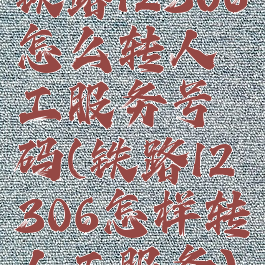 铁路12306
怎么转人
工服务号
码(铁路12
306怎样转
人工服务)